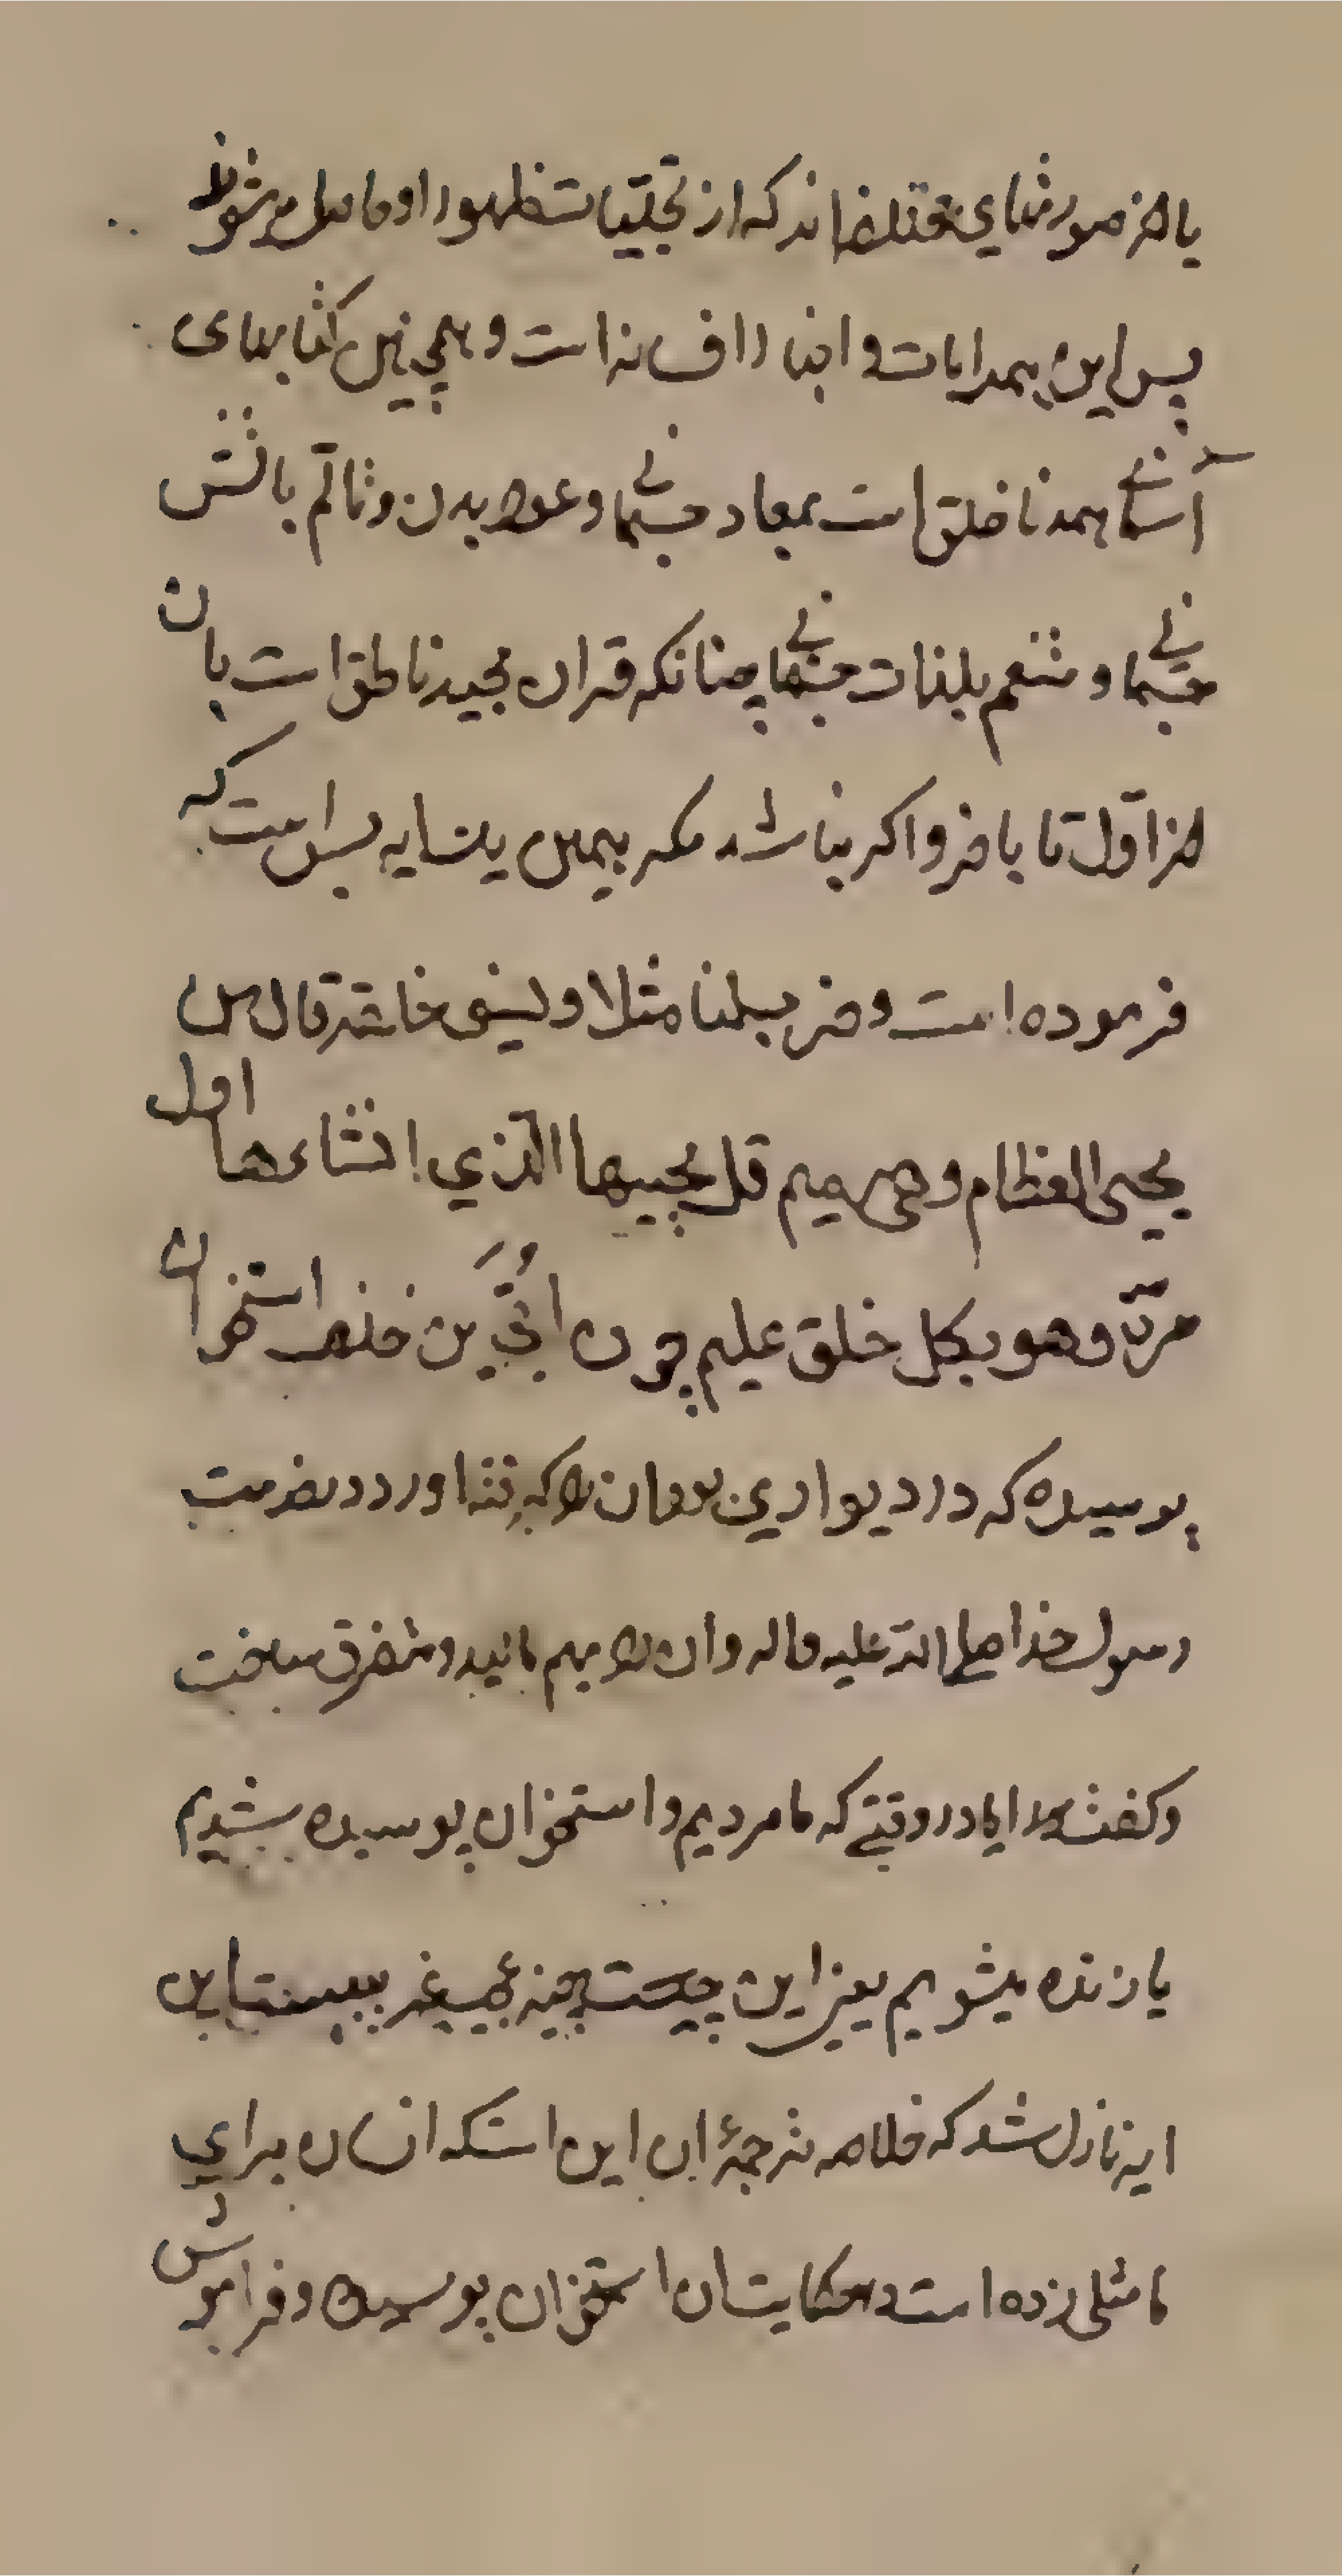 یا از صورتهای مختلفه‌اند که از تجلیات ظهور او حاصل میشوند
پس این همه ایات و اخبار افسانه است و همچنین کتابهای
آسمانی همه ناطق است بمعاد جسمانی و عود بدن و تالم باتش
جسمانی و متنعم بلذات جسمانی چنانکه قران مجید ناطق است بان
از اول تا باخر و اگر نباشد مکر بهمین یک ایه بس است که
فرموده است وضرب لنا مثلا ونسی خلقه قال من
یحیی العظام وهی رمیم قل یحییها الذی انشاءها اول
مرة وهو بکل خلق علیم چون ابی بن خلف استخوان
پوسیده که در دیوار بن بود ان را کرفته اورد در خدمت
رسول خدا صلی الله علیه واله وان را بهم مالید و متفرق ساخت
وکفت که ایا در وقتی که ما مردیم و استخوان پوسیده شدیم
یا زنده میشویم یعنی این چیست چیز عجیب غریبیست این
ایه نازل شد که خلاصه ترجمهٔ ان این استکه انسان برای
ما مثلی زده است و حکایت ان استخوان پوسیده و فراموش